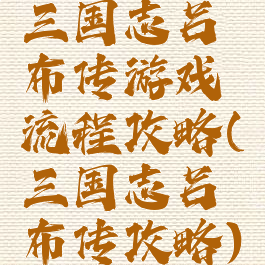 三国志吕
布传游戏
流程攻略(
三国志吕
布传攻略)